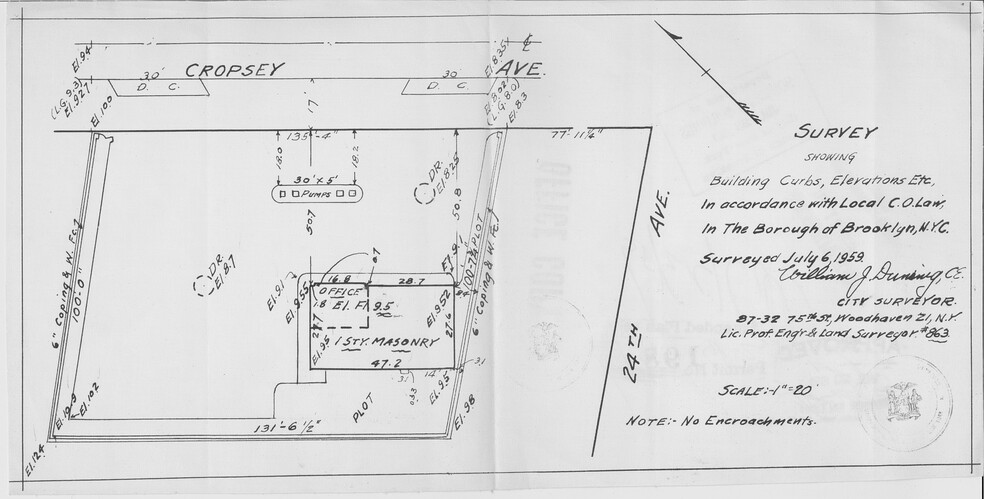 El. 9.4
(L.G. 9.3)
El. 9.27
El. 10.0
30'
D. C.
CROPSEY
AVE.
17'
30
D. C.
El. 8.35
℄
El. 8.02
(L.G. 8.0)
El. 8.3
135'-4"
77'-11¼"
18.0
18.2
30' x 5'
PUMPS
50.7
DR.
El. 8.25
50.8
DR.
El. 8.7
6" Coping & W. Fc.
100'-0"
El. 9.1
El. 9.55
16.8
28.7
El. 9.1
OFFICE
1.8
El. Fl. 9.5
27.7
El. 9.5
1 STY. MASONRY
47.2
El. 9.52
27.6
El. 9.5
3.1
14'
3.1
PLOT
6" Coping & W. Fc.
El. 9.8
El. 10.2
El. 12.4
131'-6½"
PLOT
24TH AVE.
SURVEY
SHOWING
Building Curbs, Elevations Etc,
In accordance with Local C.O. Law,
In The Borough of Brooklyn, N.Y.C.
Surveyed July 6, 1959.
William J. Dunsing, C.E.
CITY SURVEYOR.
87-32 75th St, Woodhaven 21, N.Y.
Lic. Prof. Engr. & Land Surveyor #863.
SCALE:-1"=20'
NOTE:- No Encroachments.